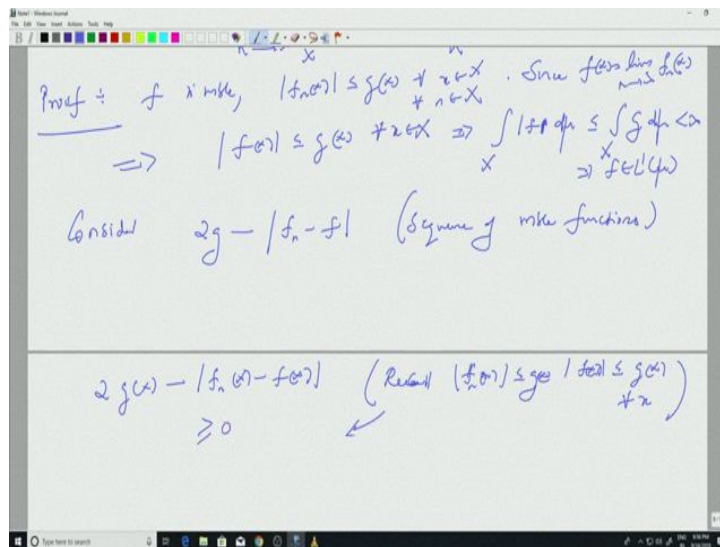 Note1 - Windows Journal
File Edit View Insert Actions Tools Help
X
Proof : f is mble, |fₙ(x)| ≤ g(x) ∀ x ∈ X ∀ n ∈ X. Since f(x) = lim fₙ(x)
n→∞
⇒ |f(x)| ≤ g(x) ∀ x ∈ X ⇒ ∫_X |f| dμ ≤ ∫_X g dμ < ∞
⇒ f ∈ L¹(μ)
Consider 2g - |fₙ - f| (Sequence of mble functions)
2g(x) - |fₙ(x) - f(x)| (Recall |fₙ(x)| ≤ g(x) |f(x)| ≤ g(x)
≥ 0 ∀ x)
Type here to search